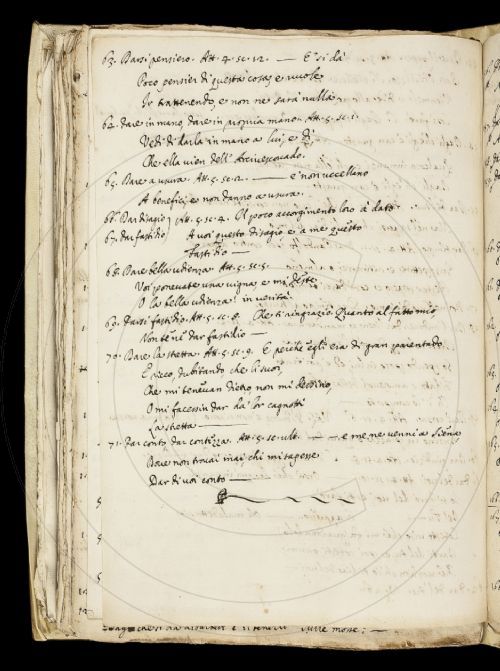 63. Darsi pensiero. Att. 4. sc. 12. — E si dà
Poco pensier di questa cosa, e vuole
Ir trattenendo, e non ne sarà nulla
64. dare in mano, dare in propria mano. Att. 5. sc. 1.
Vedi di darla in mano a lui, e dì
Che ella vien dell' Arcivescovado.
65. Dare a usura. Att. 5. sc. 2. — e non uccellino
A benefici, e non danno a usura.
66. Dar disagio) Att. 5. sc. 4. Il poco accorgimento loro à dato
67. dar fastidio) A voi questo disagio e a me questo
fastidio —
68. Dare bella udienza. Att. 5. sc. 5.
Voi ponevate una vigna, e mi deste
O la bella udienza! in verità
69. Darsi fastidio. Att. 5. sc. 8. Che ti ringrazio. Quanto al fatto mio
Non te ne dar fastidio —
70. Dare la stretta. Att. 5. sc. 9. E perchè egli era di gran parentado
E ricco, dubitando che li suoi,
Che mi tenevan dietro non mi dessino,
O mi facessin dar da lor cagnotti
La stretta —
71. Dar conto dar contezza. Att. 5. sc. ult. — e me ne venni a Siena,
Dove non trovai mai, chi mi sapesse
Dar di voi conto —